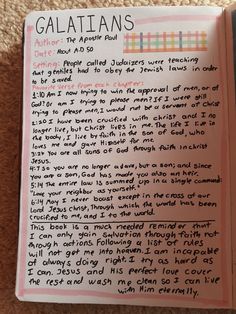 GALATIANS
Author: The Apostle Paul
Date: About A.D 50
Setting: People called Judaizers were teaching
that gentiles had to obey the Jewish laws in order
to be saved.
Favorite Verse from each chapter:
1:10 Am I now trying to win the approval of men, or of
God? Or am I trying to please men? If I were still
trying to please men, I would not be a servant of Christ
2:20 I have been crucified with christ and I no
longer live, but Christ lives in me. The life I live in
the body, I live by faith in the son of God, who
loves me and gave Himself for me.
3:26 You are all sons of God through faith in christ
Jesus.
4:7 So you are no longer a slave, but a son; and since
you are a son, God has made you also an heir.
5:14 The entire law is summed up in a single command:
"Love your neighbor as yourself."
6:14 May I never boast except in the cross of our
Lord Jesus christ, through which the world has been
crucified to me, and I to the world.
This book is a much needed reminder that
I can only gain salvation through faith not
through actions. Following a list of rules
will not get me into heaven. I am incapable
of always doing right. I try as hard as
I can. Jesus and His perfect love cover
the rest and wash me clean so I can live
with Him eternally.